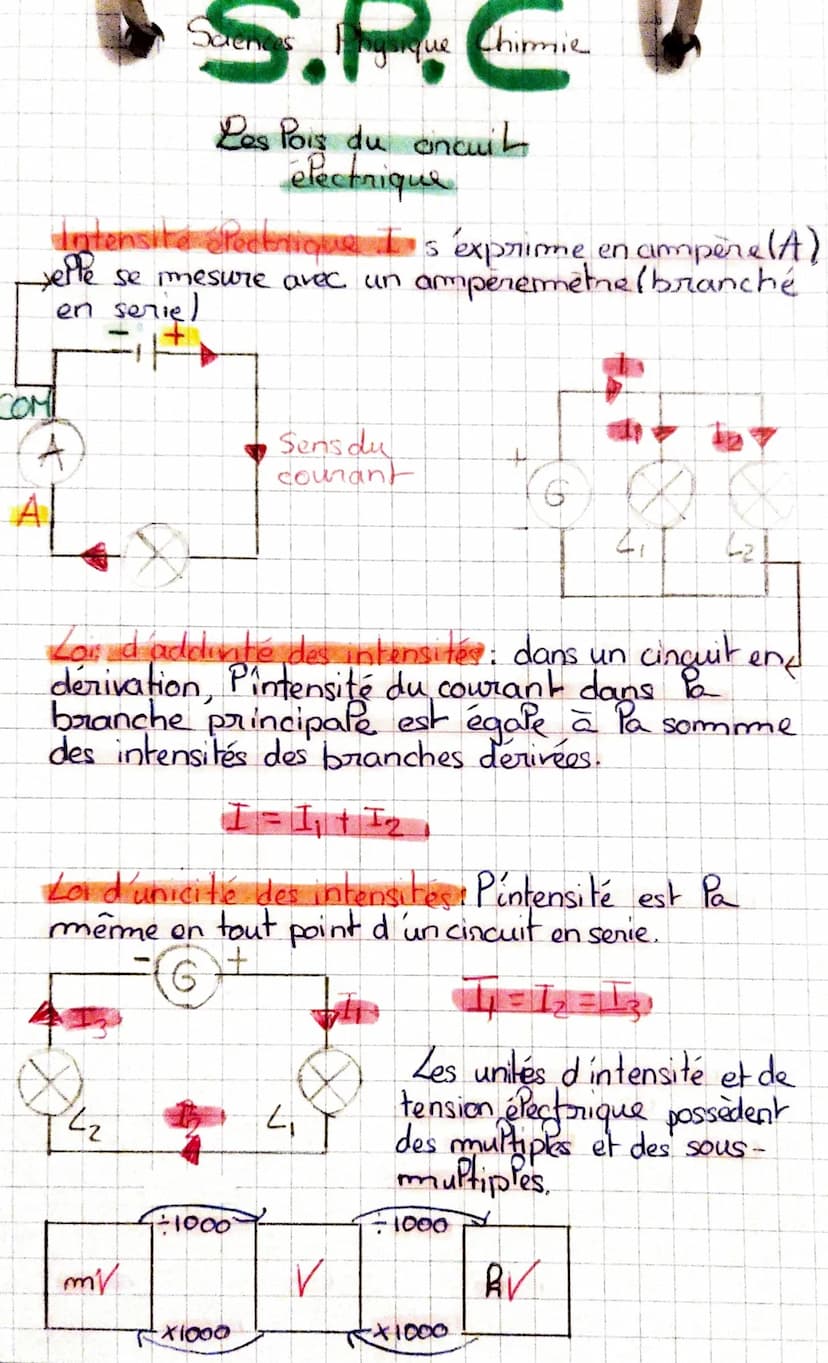 S.P.C
Sciences Physique Chimie
Les lois du circuit
électrique
Intensité électrique I s'exprime en ampère (A)
elle se mesure avec un ampèremètre (branché
en serie)
- +
COM
A
A
Sens du
courant
I
I1 I2
+
G
-
L1 L2
Loi d'additivité des intensités : dans un circuit en
dérivation, l'intensité du courant dans la
branche principale est égale à la somme
des intensités des branches dérivées.
I = I1 + I2
Loi d'unicité des intensités : l'intensité est la
même en tout point d'un circuit en serie.
- G +
I3 I1
I1 = I2 = I3
L2 I2 L1
Les unités d'intensité et de
tension électrique possèdent
des multiples et des sous-
multiples.
÷1000 ÷1000
mV V kV
x1000 x1000